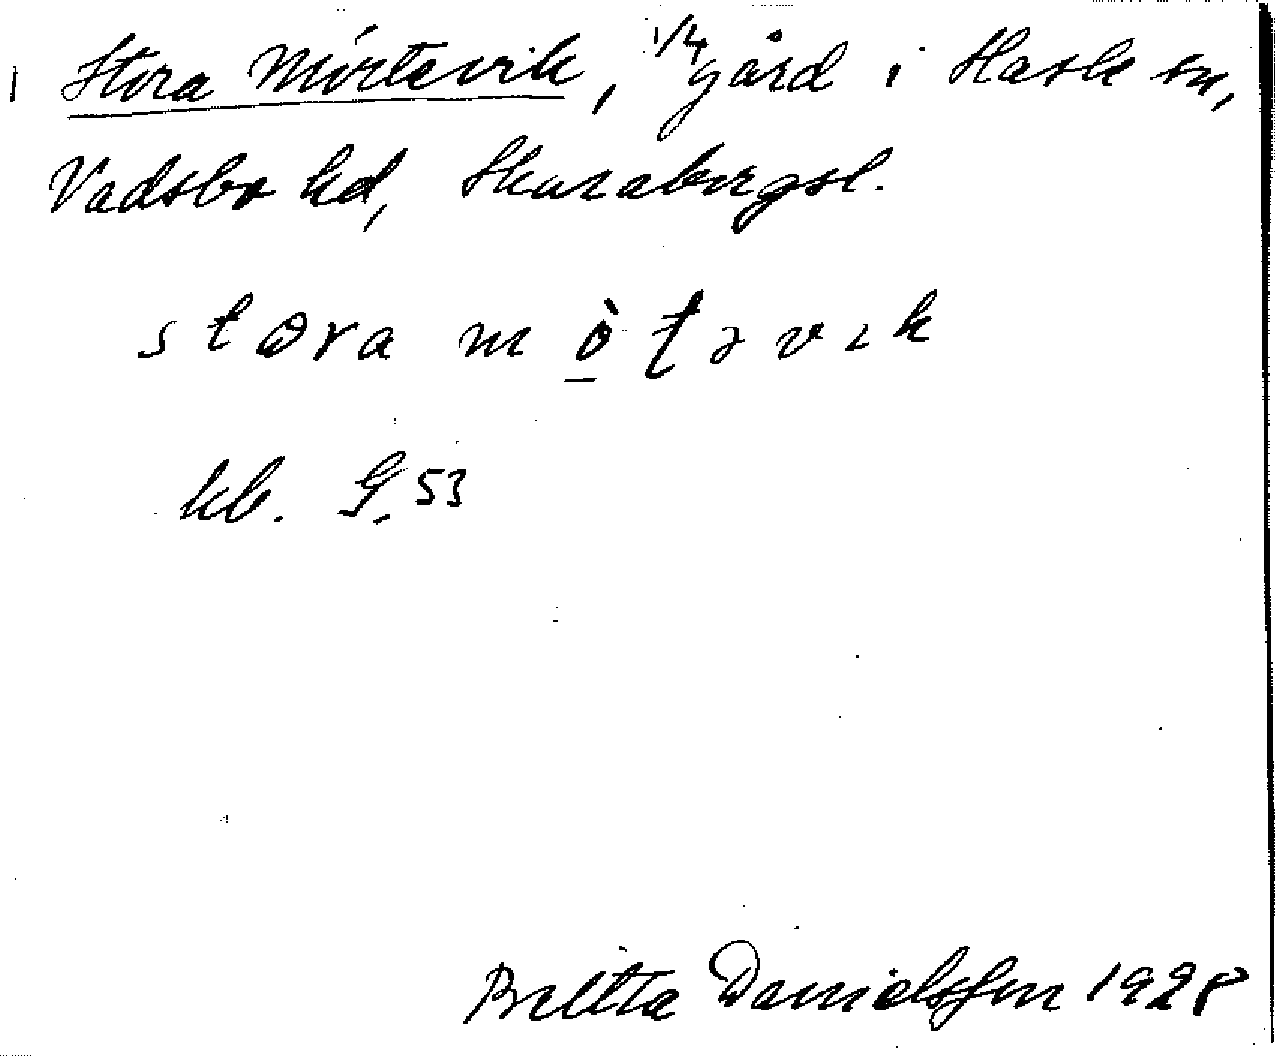 Stora Mörtevik, 1/4 gård i Hassle sn,
Vadsbo hd, Skarabergsl.
stora mö̀təvik
kb. G. 53
Britta Danielsson 1928